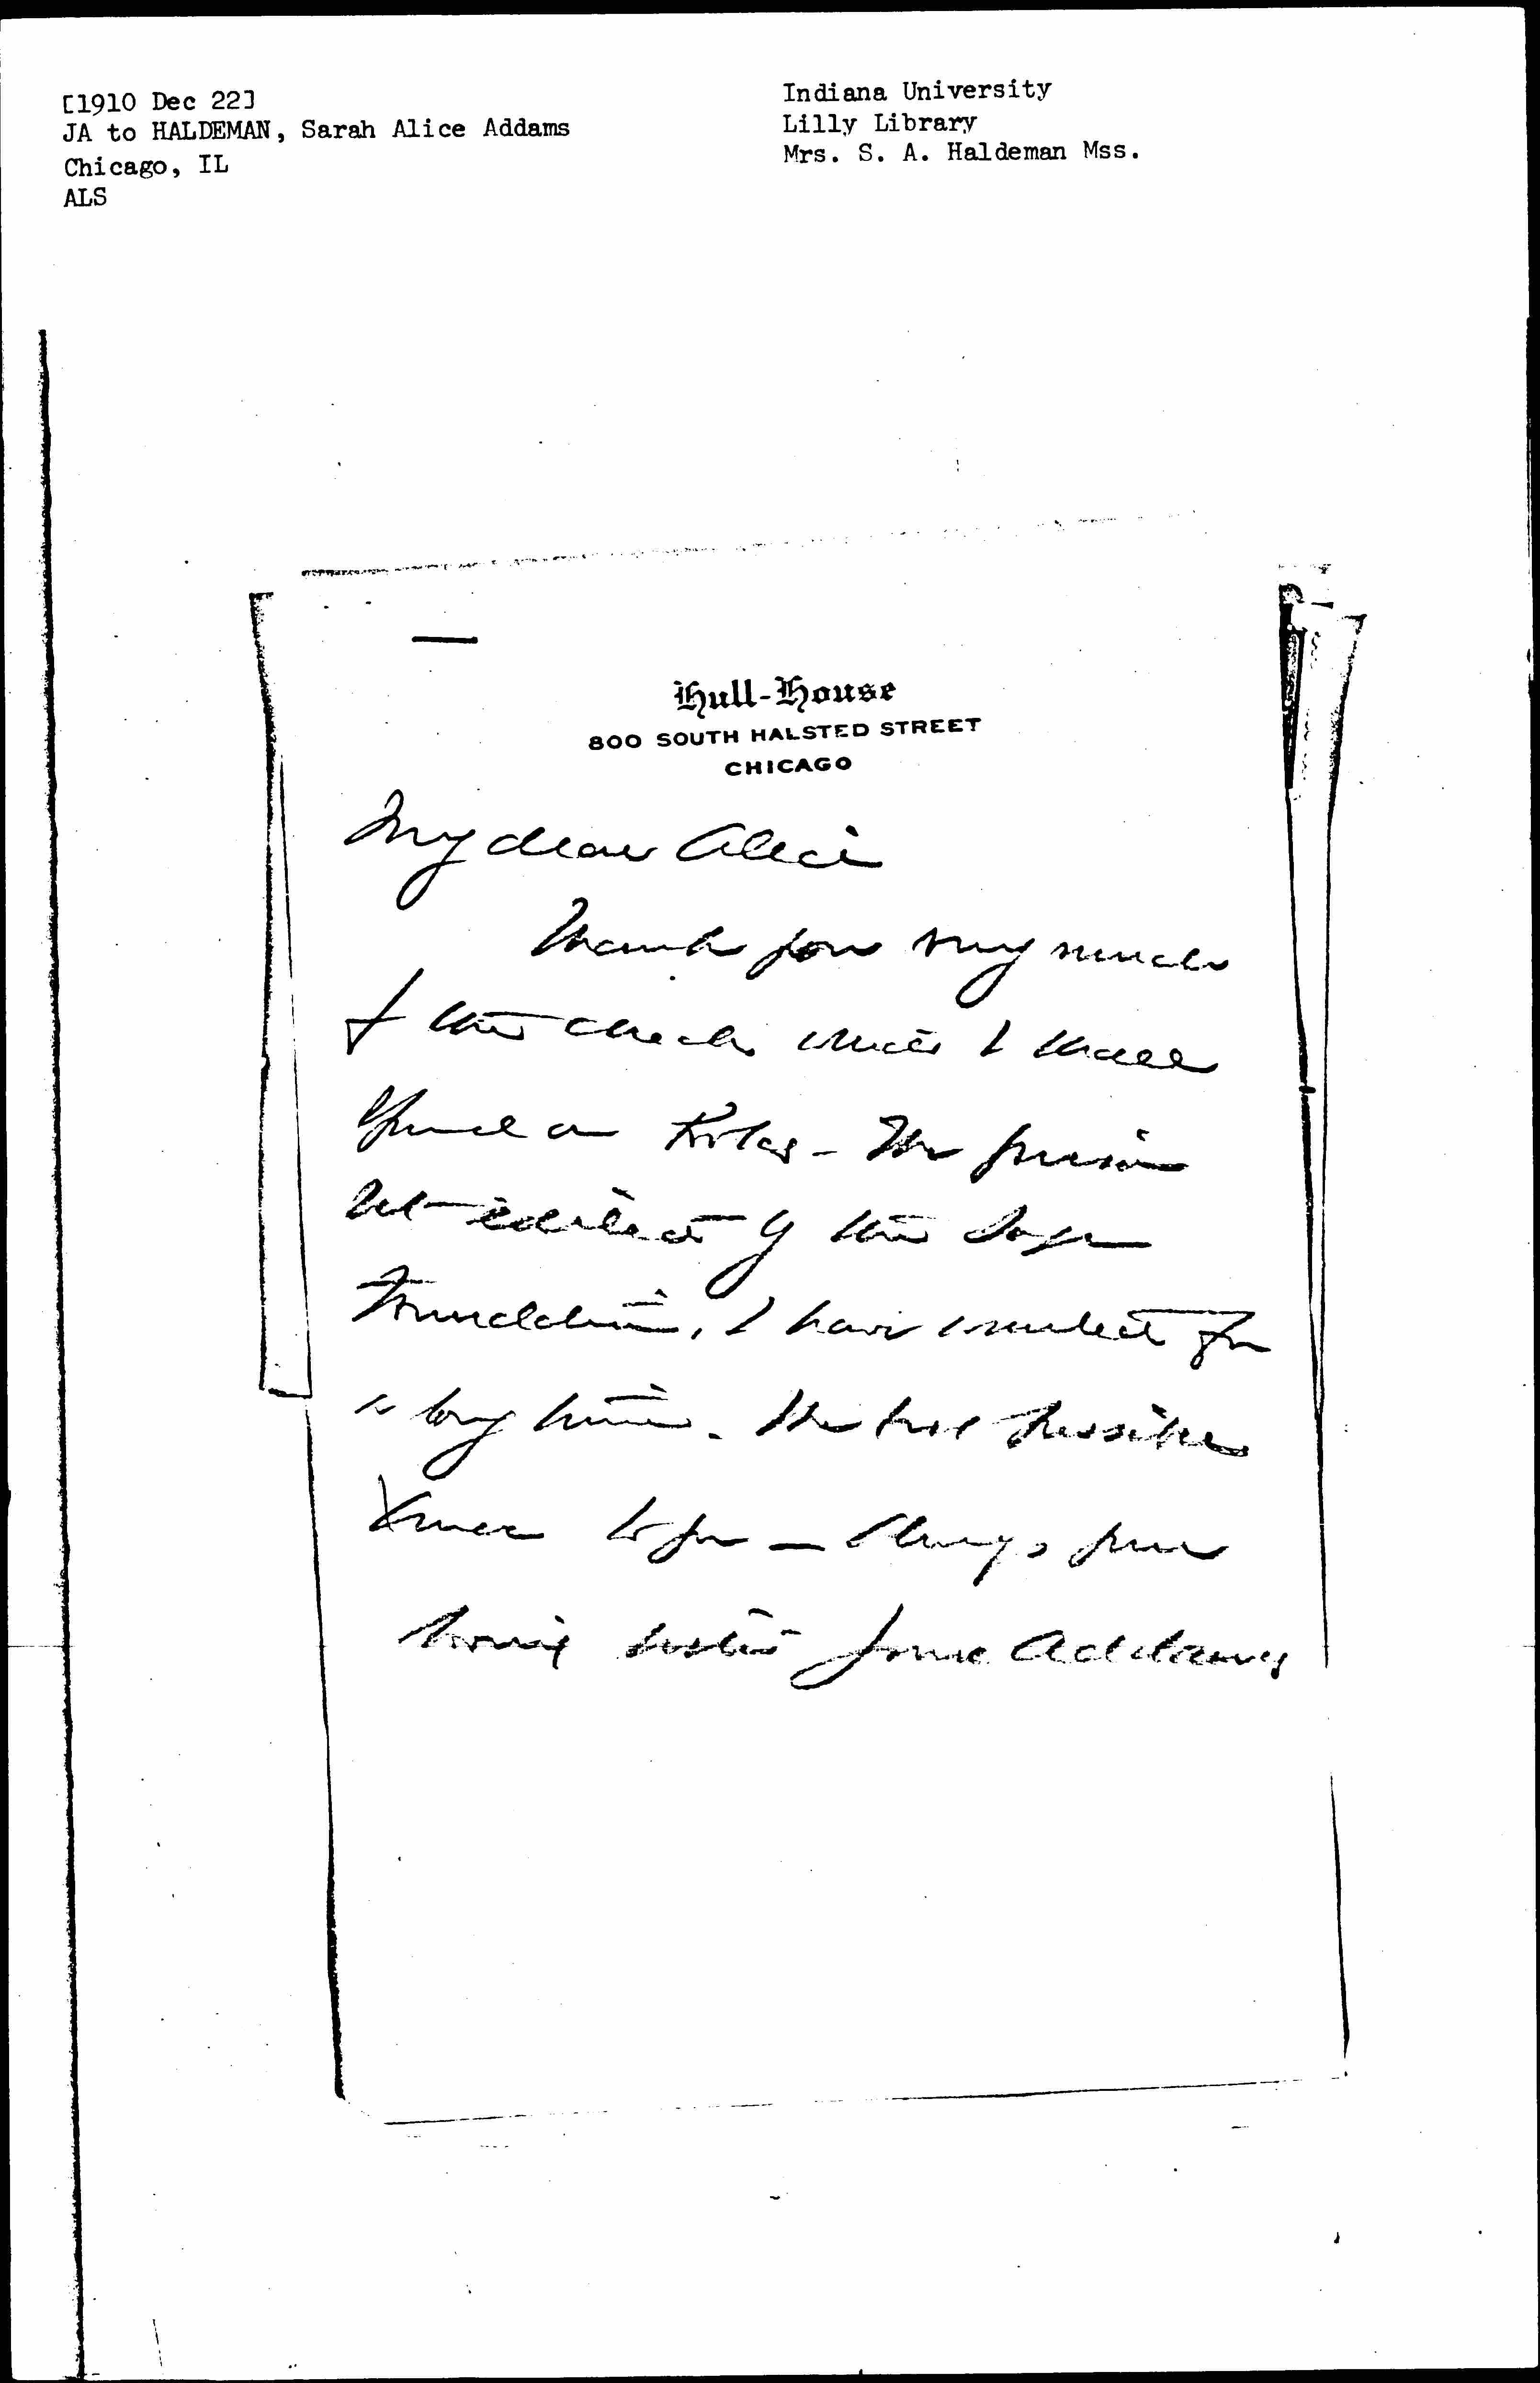 [1910 Dec 22]
JA to HALDEMAN, Sarah Alice Addams
Chicago, IL
ALS
Indiana University
Lilly Library
Mrs. S. A. Haldeman Mss.
Hull-House
800 SOUTH HALSTED STREET
CHICAGO
My dear Alice
Thank you very much
for the check which I shall
spend on books - The prison
set edited by the Sage
Foundation, I have wanted for
a long time. The best possible
Xmas to you — Always your
loving sister Jane Addams